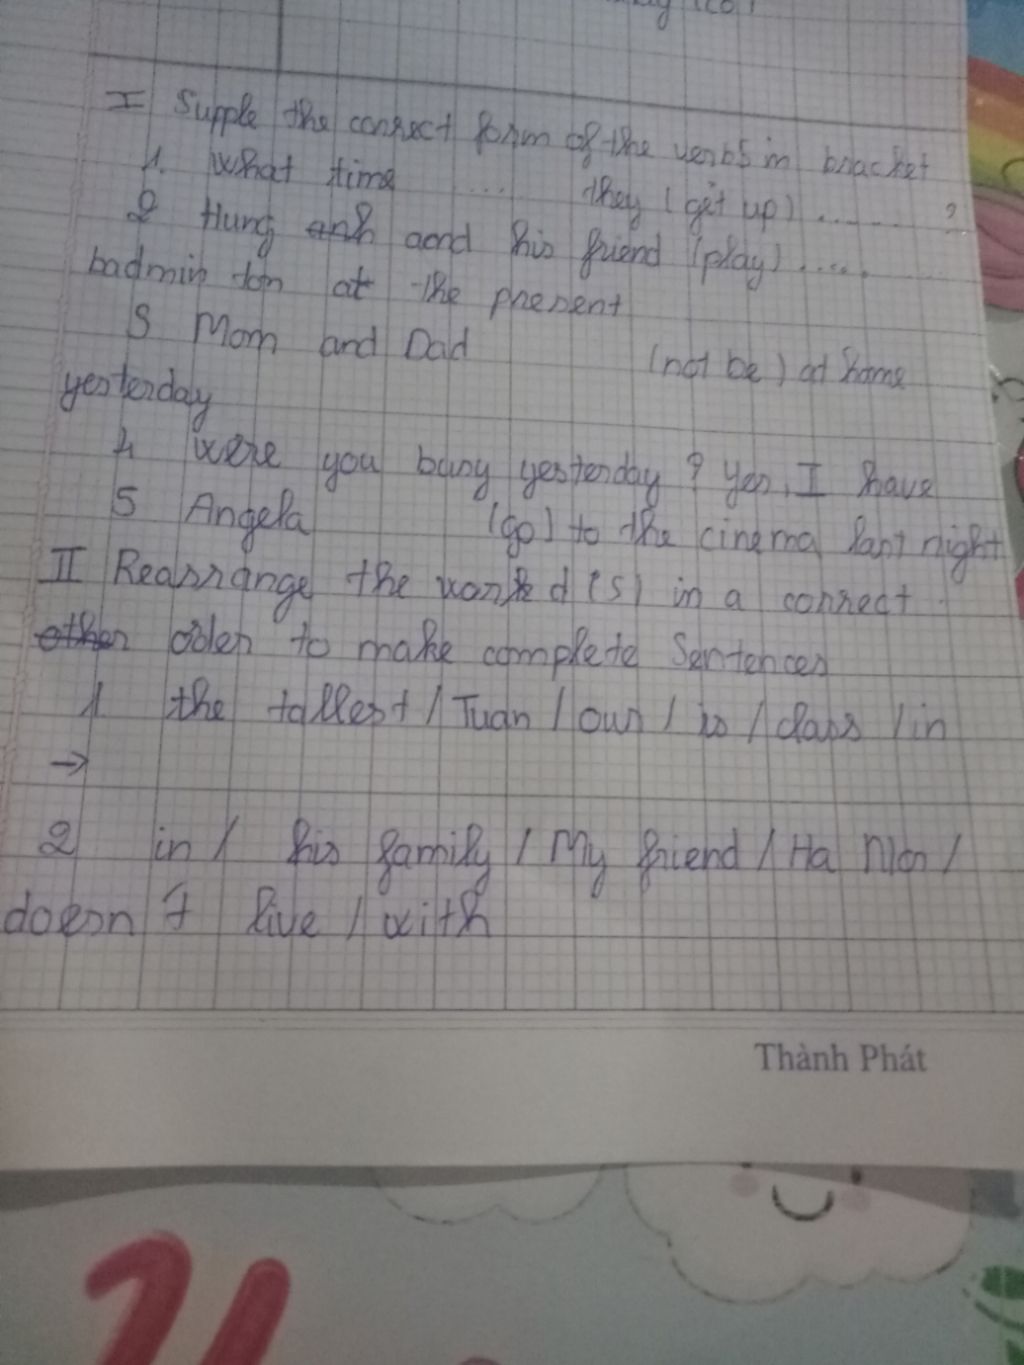 I Supple the correct form of the verbs in bracket
1. What time ... they (get up) ........ ?
2 Hung anh aond his friend (play) .....
badmin ton at the present
3 Mom and Dad (not be) at home
yesterday
4 Were you busy yesterday ? Yes, I have
5 Angela (go) to the cinema last night
II Rearrange the work d (s) in a correct
other oder to make complete Sentences
1 the tallest / Tuan / our / is / class / in
→
2 in / his family / My friend / Ha Noi /
doesn't live / with
Thành Phát